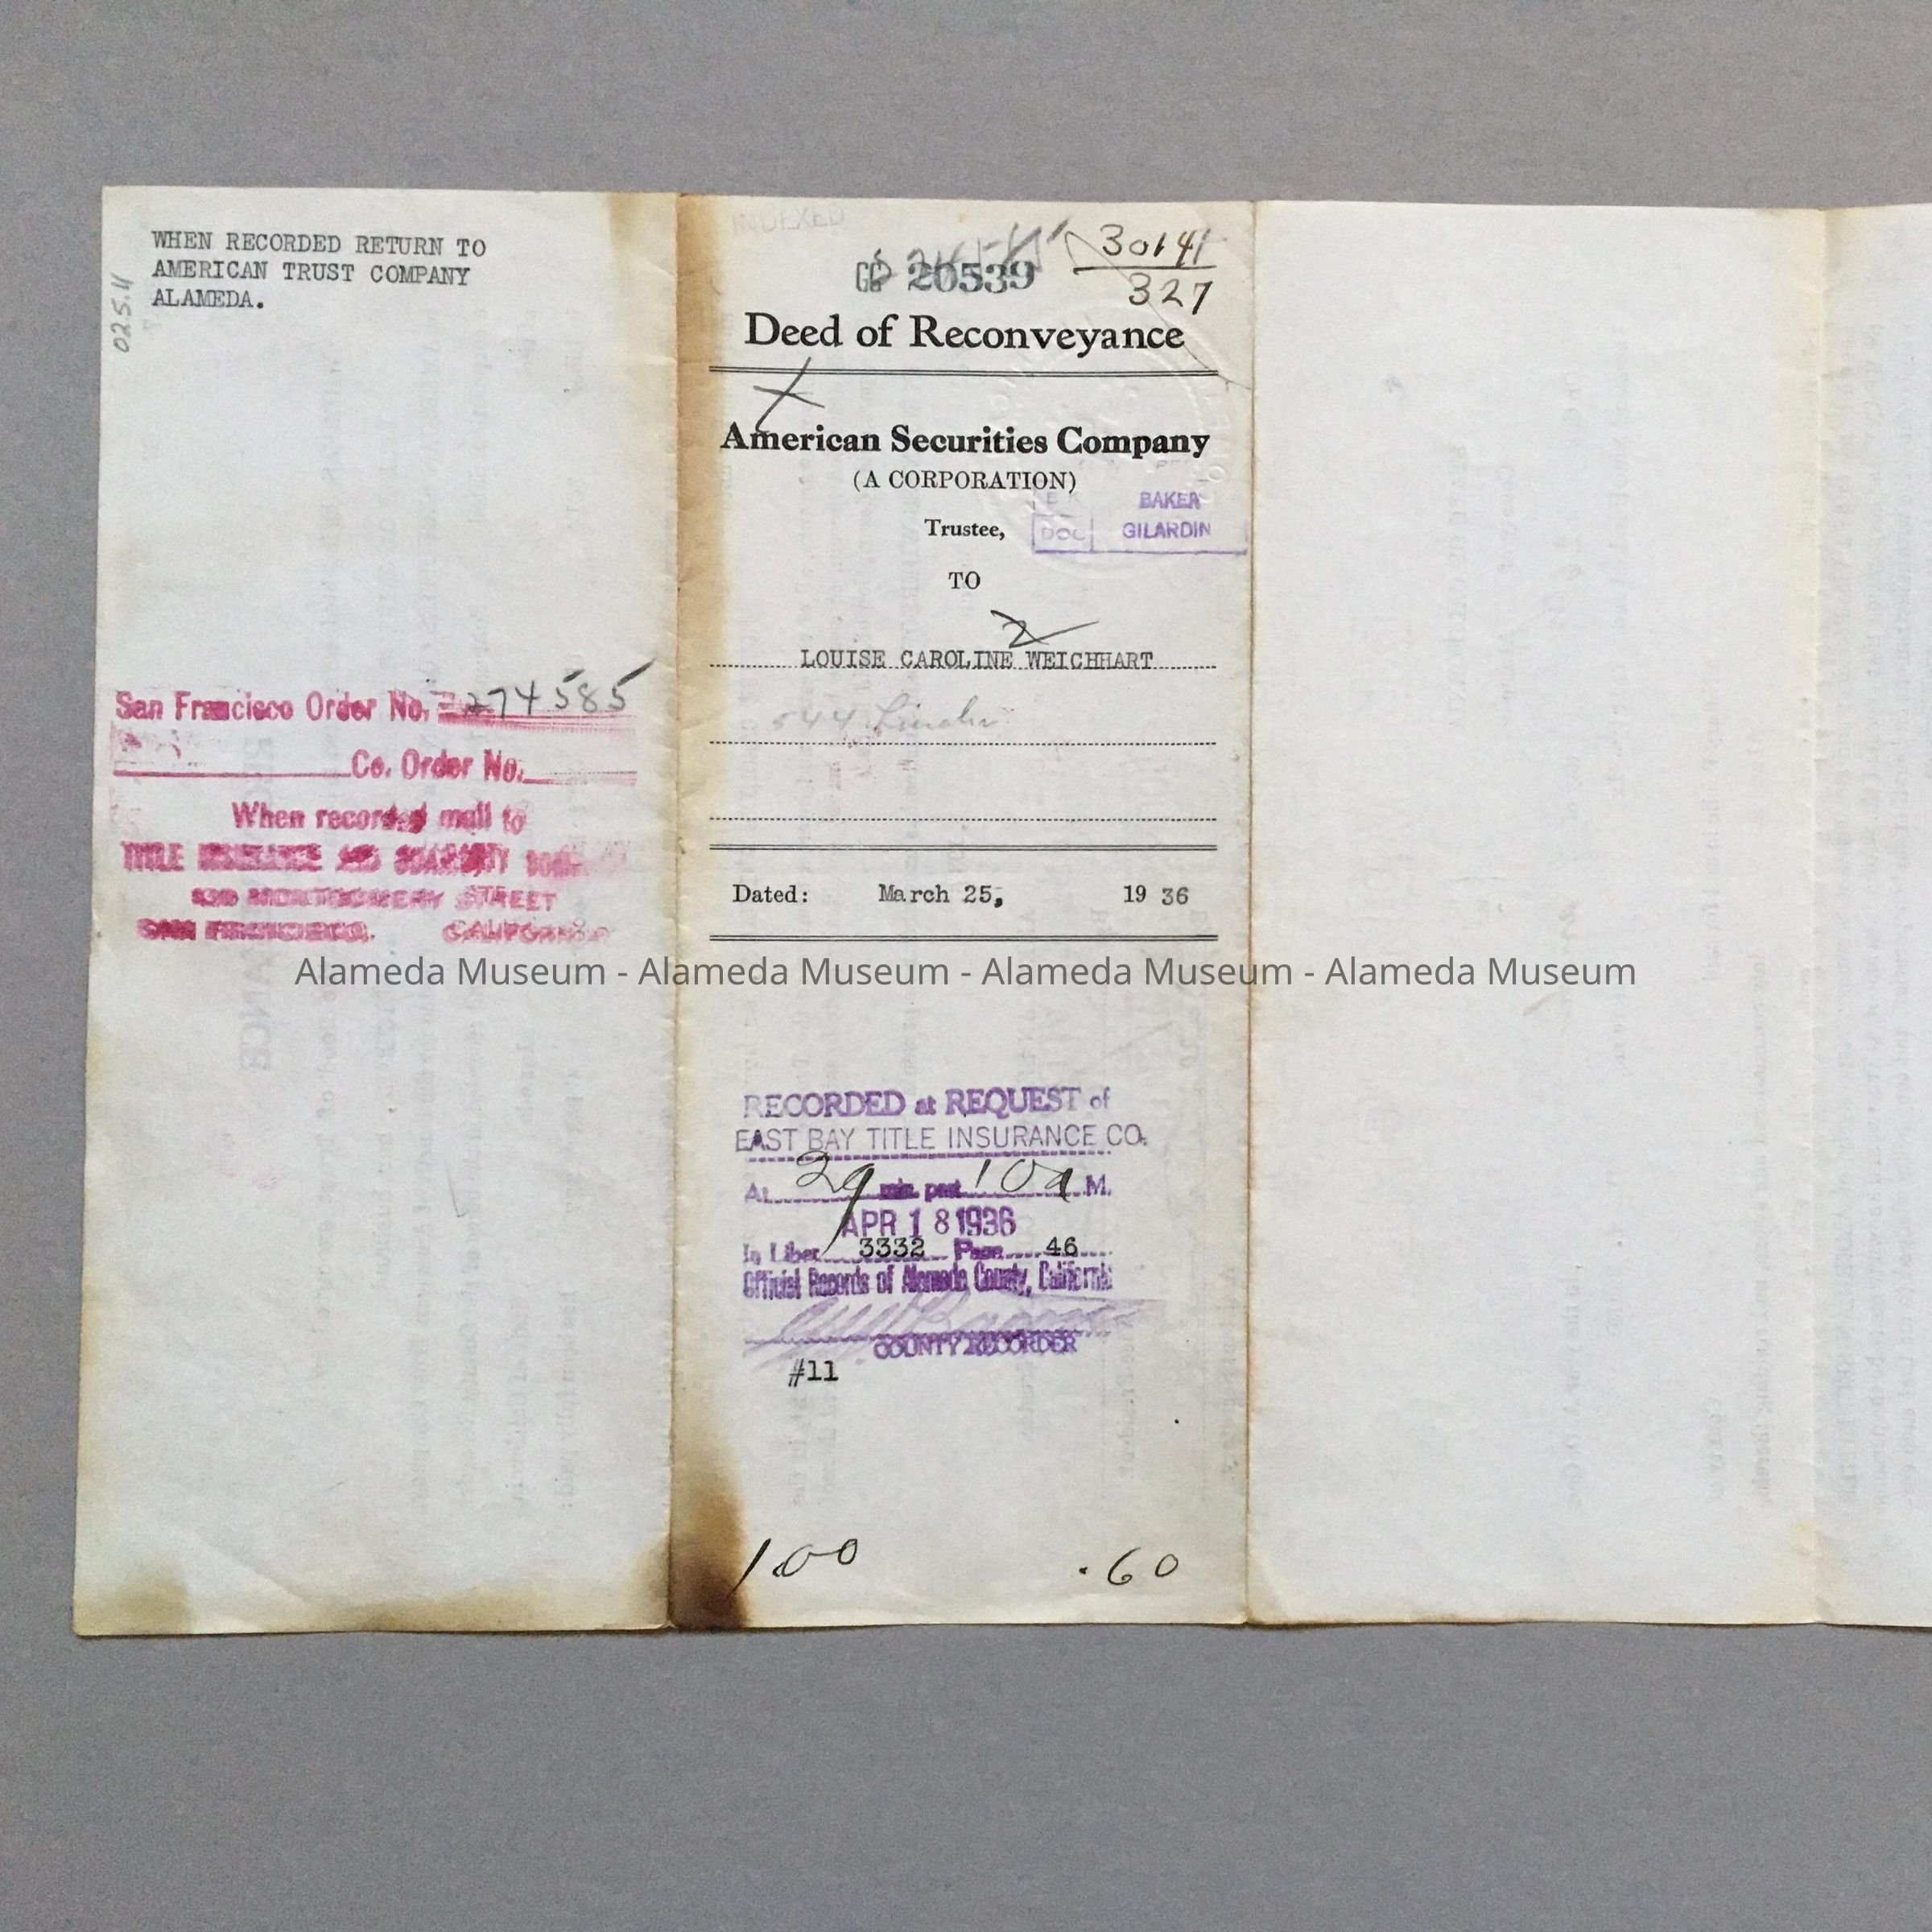 WHEN RECORDED RETURN TO
AMERICAN TRUST COMPANY
ALAMEDA.
025.4
San Francisco Order No. 274585
Co. Order No.
When recorded mail to
TITLE INSURANCE AND GUARANTY
MONTGOMERY STREET
SAN FRANCISCO. CALIFORNIA
INDEXED
GG 20539
30141
327
Deed of Reconveyance
American Securities Company
(A CORPORATION)
Trustee,
DOC
BAKER
GILARDIN
TO
2
LOUISE CAROLINE WEICHHART
544 Lincoln
Dated: March 25, 19 36
Alameda Museum - Alameda Museum - Alameda Museum - Alameda Museum
RECORDED at REQUEST of
EAST BAY TITLE INSURANCE CO.
At 29 min. past 10 a M.
APR 18 1936
In Liber 3332 Page 46
Official Records of Alameda County, California
COUNTY RECORDER
#11
1.00 .60